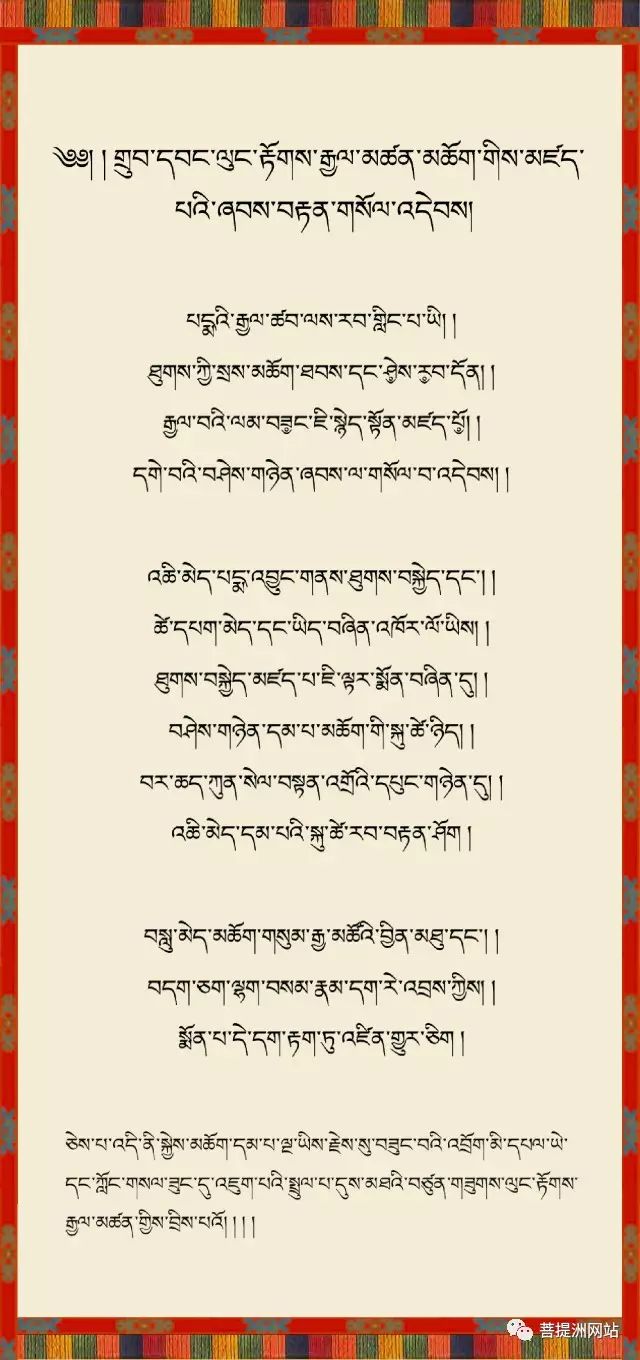 ༄༅། །གྲུབ་དབང་ལུང་རྟོགས་རྒྱལ་མཚན་མཆོག་གིས་མཛད་
པའི་ཞབས་བརྟན་གསོལ་འདེབས།
པདྨའི་རྒྱལ་ཚབ་ལས་རབ་གླིང་པ་ཡི། །
ཐུགས་ཀྱི་སྲས་མཆོག་ཐབས་དང་ཤེས་རབ་དོན། །
རྒྱལ་བའི་ལམ་བཟང་ཇི་སྙེད་སྟོན་མཛད་པོ། །
དགེ་བའི་བཤེས་གཉེན་ཞབས་ལ་གསོལ་བ་འདེབས། །
འཆི་མེད་པདྨ་འབྱུང་གནས་ཐུགས་བསྐྱེད་དང་། །
ཚེ་དཔག་མེད་དང་ཡིད་བཞིན་འཁོར་ལོ་ཡིས། །
ཐུགས་བསྐྱེད་མཛད་པ་ཇི་ལྟར་སྨོན་བཞིན་དུ། །
བཤེས་གཉེན་དམ་པ་མཆོག་གི་སྐུ་ཚེ་ཉིད། །
བར་ཆད་ཀུན་སེལ་བསྟན་འགྲོའི་དཔུང་གཉེན་དུ། །
འཆི་མེད་དམ་པའི་སྐུ་ཚེ་རབ་བརྟན་ཤོག །
བསླུ་མེད་མཆོག་གསུམ་རྒྱ་མཚོའི་བྱིན་མཐུ་དང་། །
བདག་ཅག་ལྷག་བསམ་རྣམ་དག་རེ་འབྲས་ཀྱིས། །
སྨོན་པ་དེ་དག་རྟག་ཏུ་འཛིན་གྱུར་ཅིག །
ཅེས་པ་འདི་ནི་སྐྱེས་མཆོག་དམ་པ་ལྔ་ཡིས་རྗེས་སུ་བཟུང་བའི་འབྲོག་མི་དཔལ་ཡེ་
དང་ཀློང་གསལ་ཟུང་དུ་འཇུག་པའི་སྤྲུལ་པ་དུས་མཐའི་བཙུན་གཟུགས་ལུང་རྟོགས་
རྒྱལ་མཚན་གྱིས་བྲིས་པའོ། ། ། །
菩提洲网站